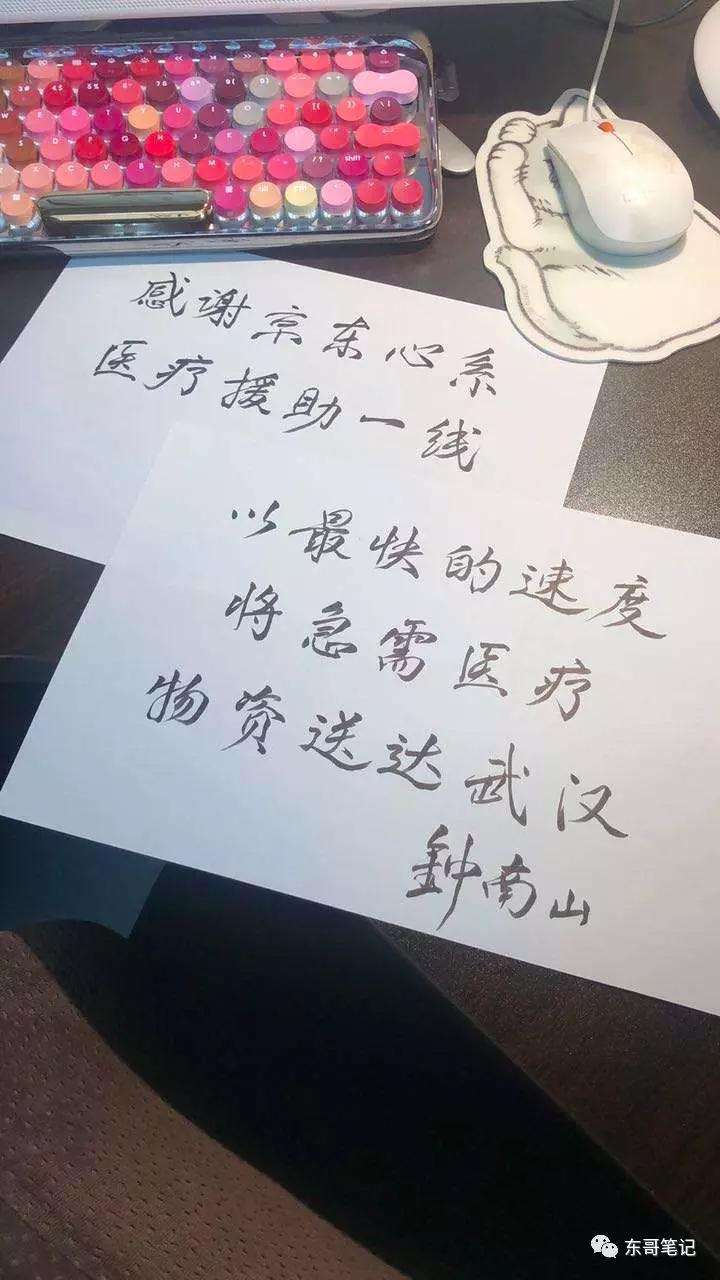 感谢京东心系
医疗援助一线
以最快的速度
将急需医疗
物资送达武汉
鍾南山
东哥笔记